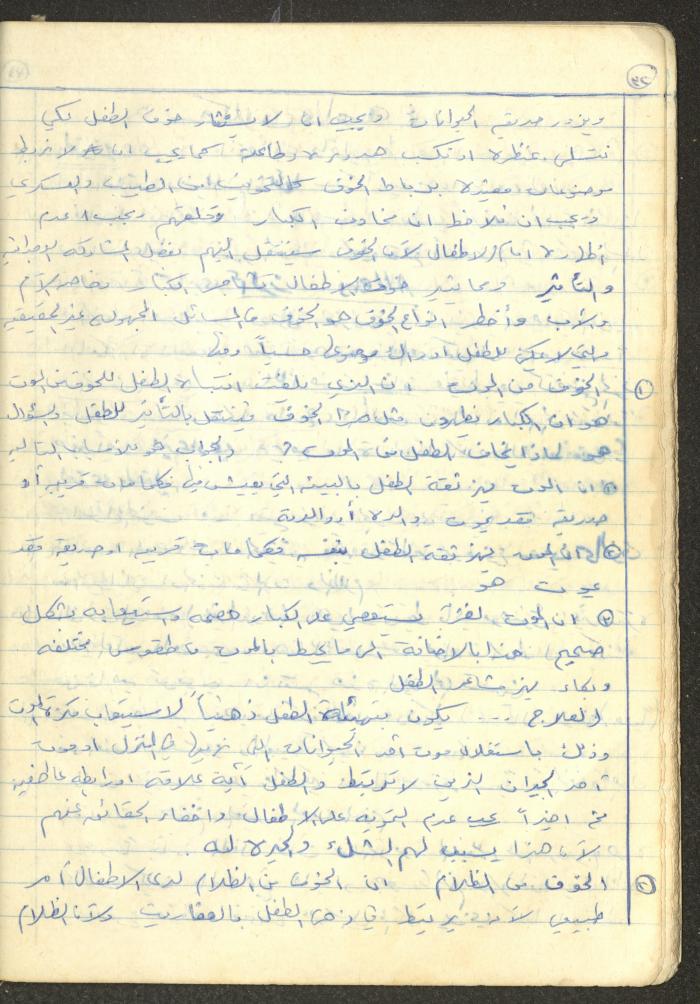 ٣٢
ويزور حديقة الحيوانات ويجب ان لا خوف الطفل لكي
نتسلى بمنظره او نكسب هدوئه وطاعته كما يجب ان لا نربط
موضوعات معينة برباط الخوف كالتخويف من الطبيب والعسكري
ويجب ان نلاحظ ان مخاوف الكبار وقلقهم يجب عدم
اظهاره امام الاطفال لأن الخوف سينتقل اليهم بفضل المشاركة الوجدانية
والتأثير ومما يثير خوف الاطفال الكبار وخاصة الأم
والأب وأخطر انواع الخوف هو الخوف من المسائل المجهولة غير الحقيقية
والتي لا يمكن للطفل ادراك موضوعها حسياً
١ الخوف من الموت ان الذي يلفت انتباه الطفل للخوف من الموت
هو ان الكبار يظهرون مثل هذا الخوف فينتقل بالتأثير للطفل والسؤال
هو لماذا يخاف الطفل من الموت؟ والجواب هو للاسباب التالية
١ ان الموت يهز ثقة الطفل بالبيئة التي يعيش فيها فكما مات قريب أو
صديق فقد يموت والده أو والدته
٢ ان الموت يهز ثقة الطفل بنفسه فكما مات قريب او صديق فقد
يموت هو
٣ ان الموت لغز يستعصي على الكبار هضمه واستيعابه بشكل
صحيح هذا بالاضافة الى ما يحيط بالموت من طقوس مختلفة
وبكاء يهز مشاعر الطفل
العلاج ... يكون بتهيئة الطفل ذهنياً لاستيعاب فكرة الموت
وذلك باستغلال موت أحد الحيوانات التي نربيها في المنزل او موت
أحد الجيران الذين لا تربطه والطفل أية علاقة او رابطة عاطفية
ثم اخيراً يجب عدم التمويه على الاطفال واخفاء الحقائق عنهم
لأن هذا يسبب لهم الشك والحيرة
٢ الخوف من الظلام ان الخوف من الظلام لدى الاطفال أمر
طبيعي لأنه يرتبط في ذهن الطفل بالعفاريت ولأن الظلام